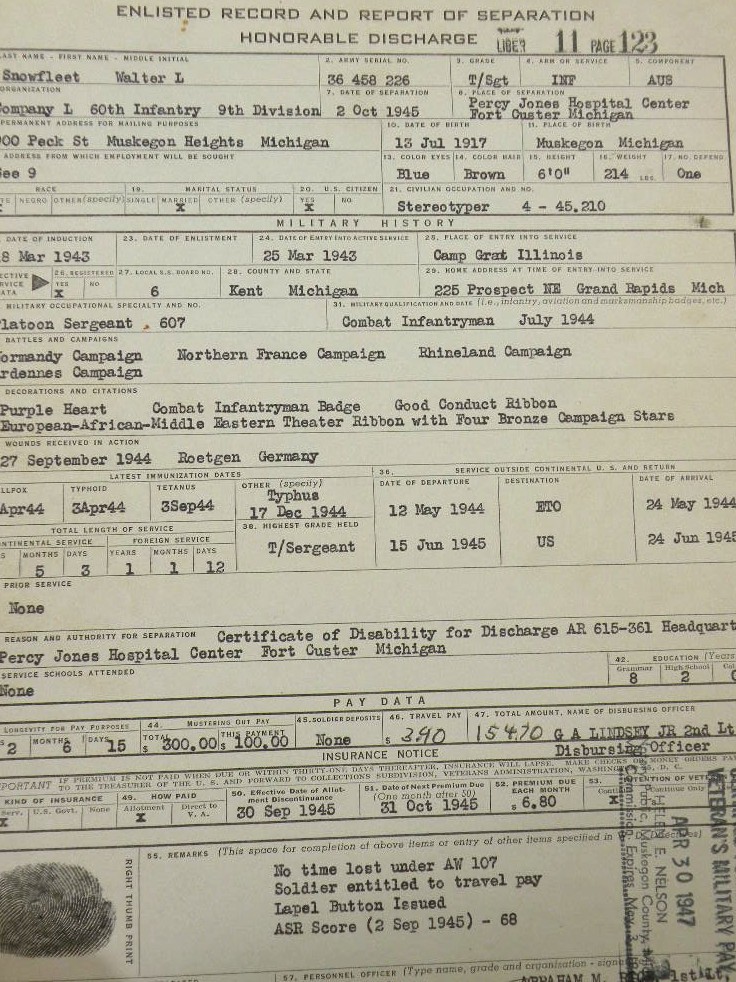 ENLISTED RECORD AND REPORT OF SEPARATION
HONORABLE DISCHARGE LIBER 11 PAGE 123
LAST NAME - FIRST NAME - MIDDLE INITIAL 2. ARMY SERIAL NO. 3. GRADE 4. ARM OR SERVICE 5. COMPONENT
Snowfleet Walter L 36 458 226 T/Sgt INF AUS
ORGANIZATION 7. DATE OF SEPARATION 8. PLACE OF SEPARATION
Company L 60th Infantry 9th Division 2 Oct 1945 Percy Jones Hospital Center
Fort Custer Michigan
PERMANENT ADDRESS FOR MAILING PURPOSES 10. DATE OF BIRTH 11. PLACE OF BIRTH
00 Peck St Muskegon Heights Michigan 13 Jul 1917 Muskegon Michigan
ADDRESS FROM WHICH EMPLOYMENT WILL BE SOUGHT 13. COLOR EYES 14. COLOR HAIR 15. HEIGHT 16. WEIGHT 17. NO. DEPEND
See 9 Blue Brown 6'0" 214 LBS. One
RACE 19. MARITAL STATUS 20. U.S. CITIZEN 21. CIVILIAN OCCUPATION AND NO.
NEGRO OTHER (specify) SINGLE MARRIED OTHER (specify) YES NO
X X Stereotyper 4 - 45.210
MILITARY HISTORY
DATE OF INDUCTION 23. DATE OF ENLISTMENT 24. DATE OF ENTRY INTO ACTIVE SERVICE 25. PLACE OF ENTRY INTO SERVICE
8 Mar 1943 25 Mar 1943 Camp Grat Illinois
SERVICE DATA 26. REGISTERED YES NO 27. LOCAL S.S. BOARD NO. 28. COUNTY AND STATE 29. HOME ADDRESS AT TIME OF ENTRY INTO SERVICE
X 6 Kent Michigan 225 Prospect NE Grand Rapids Mich
MILITARY OCCUPATIONAL SPECIALTY AND NO. 31. MILITARY QUALIFICATION AND DATE (i.e., infantry, aviation and marksmanship badges, etc.)
Platoon Sergeant 607 Combat Infantryman July 1944
BATTLES AND CAMPAIGNS
Normandy Campaign Northern France Campaign Rhineland Campaign
Ardennes Campaign
DECORATIONS AND CITATIONS
Purple Heart Combat Infantryman Badge Good Conduct Ribbon
European-African-Middle Eastern Theater Ribbon with Four Bronze Campaign Stars
WOUNDS RECEIVED IN ACTION
27 September 1944 Roetgen Germany
LATEST IMMUNIZATION DATES 36. SERVICE OUTSIDE CONTINENTAL U. S. AND RETURN
TYPHOID TETANUS OTHER (specify) DATE OF DEPARTURE DESTINATION DATE OF ARRIVAL
Apr44 3Apr44 3Sep44 Typhus
17 Dec 1944 12 May 1944 ETO 24 May 1944
TOTAL LENGTH OF SERVICE 38. HIGHEST GRADE HELD
CONTINENTAL SERVICE FOREIGN SERVICE T/Sergeant 15 Jun 1945 US 24 Jun 1945
MONTHS DAYS YEARS MONTHS DAYS
5 3 1 1 12
PRIOR SERVICE
None
REASON AND AUTHORITY FOR SEPARATION Certificate of Disability for Discharge AR 615-361 Headquart
Percy Jones Hospital Center Fort Custer Michigan
SERVICE SCHOOLS ATTENDED 42. EDUCATION (Years
Grammar High School
None 8 2 0
PAY DATA
LONGEVITY FOR PAY PURPOSES 44. MUSTERING OUT PAY 45. SOLDIER DEPOSITS 46. TRAVEL PAY 47. TOTAL AMOUNT, NAME OF DISBURSING OFFICER
2 MONTHS 6 DAYS 15 TOTAL $ 300.00 THIS PAYMENT $ 100.00 None $ 3.90 154.70 G A LINDSEY JR 2nd Lt
Disbursing Officer
INSURANCE NOTICE
IMPORTANT IF PREMIUM IS NOT PAID WHEN DUE OR WITHIN THIRTY-ONE DAYS THEREAFTER, INSURANCE WILL LAPSE. MAKE CHECKS OR MONEY ORDERS PAYABLE
TO THE TREASURER OF THE U. S. AND FORWARD TO COLLECTIONS SUBDIVISION, VETERANS ADMINISTRATION, WASHINGTON 25, D. C.
KIND OF INSURANCE 49. HOW PAID 50. Effective Date of Allotment Discontinuance 51. Date of Next Premium Due (One month after 50) 52. PREMIUM DUE EACH MONTH 53. INTENTION OF VETERAN
Serv. U.S. Govt. None Allotment Direct to V. A.
X X 30 Sep 1945 31 Oct 1945 $ 6.80 X
55. REMARKS (This space for completion of above items or entry of other items specified in W. D. Directives)
No time lost under AW 107
Soldier entitled to travel pay
Lapel Button Issued
ASR Score (2 Sep 1945) - 68
RIGHT THUMB PRINT
HELEN E. NELSON
Public, Muskegon County,
Commission Expires May 3
APR 30 1947
VETERAN'S MILITARY PAY
57. PERSONNEL OFFICER (Type name, grade and organization - signature)
ABRAHAM M. 1st Lt,